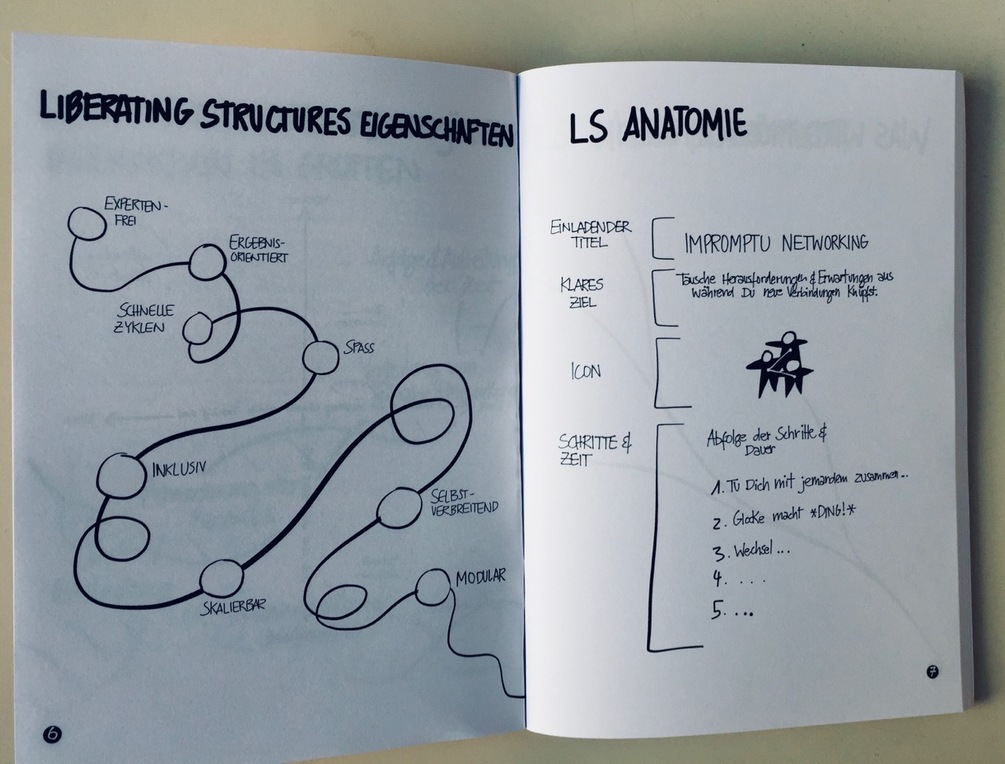 LIBERATING STRUCTURES EIGENSCHAFTEN
EXPERTEN-
FREI
ERGEBNIS-
ORIENTIERT
SCHNELLE
ZYKLEN
SPASS
INKLUSIV
SELBST-
VERBREITEND
SKALIERBAR
MODULAR
6
LS ANATOMIE
EINLADENDER
TITEL
IMPROMPTU NETWORKING
KLARES
ZIEL
Tausche Herausforderungen & Erwartungen aus
Während Du neue Verbindungen Knüpfst.
ICON
SCHRITTE &
ZEIT
Abfolge der Schritte &
Dauer
1. Tu Dich mit jemandem zusammen...
2. Glocke macht *DING!*
3. Wechsel ...
4. . . . .
5. ...
7